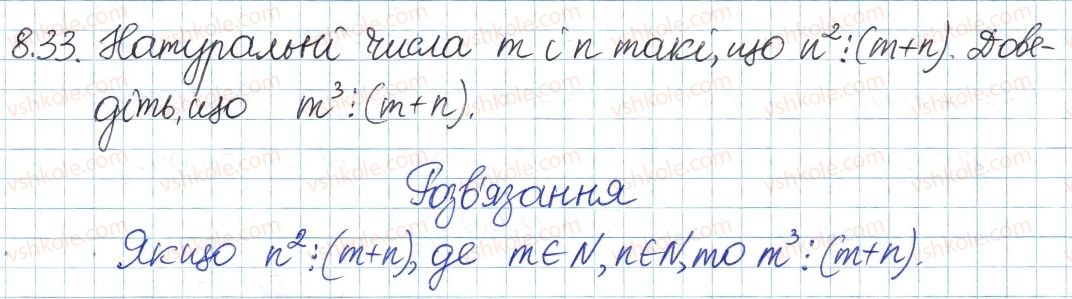 8.33. Натуральні числа m і n такі, що n²⋮(m+n). Дове-
діть, що m³⋮(m+n).
Розв'язання
Якщо n²⋮(m+n), де m∈N, n∈N, то m³⋮(m+n).